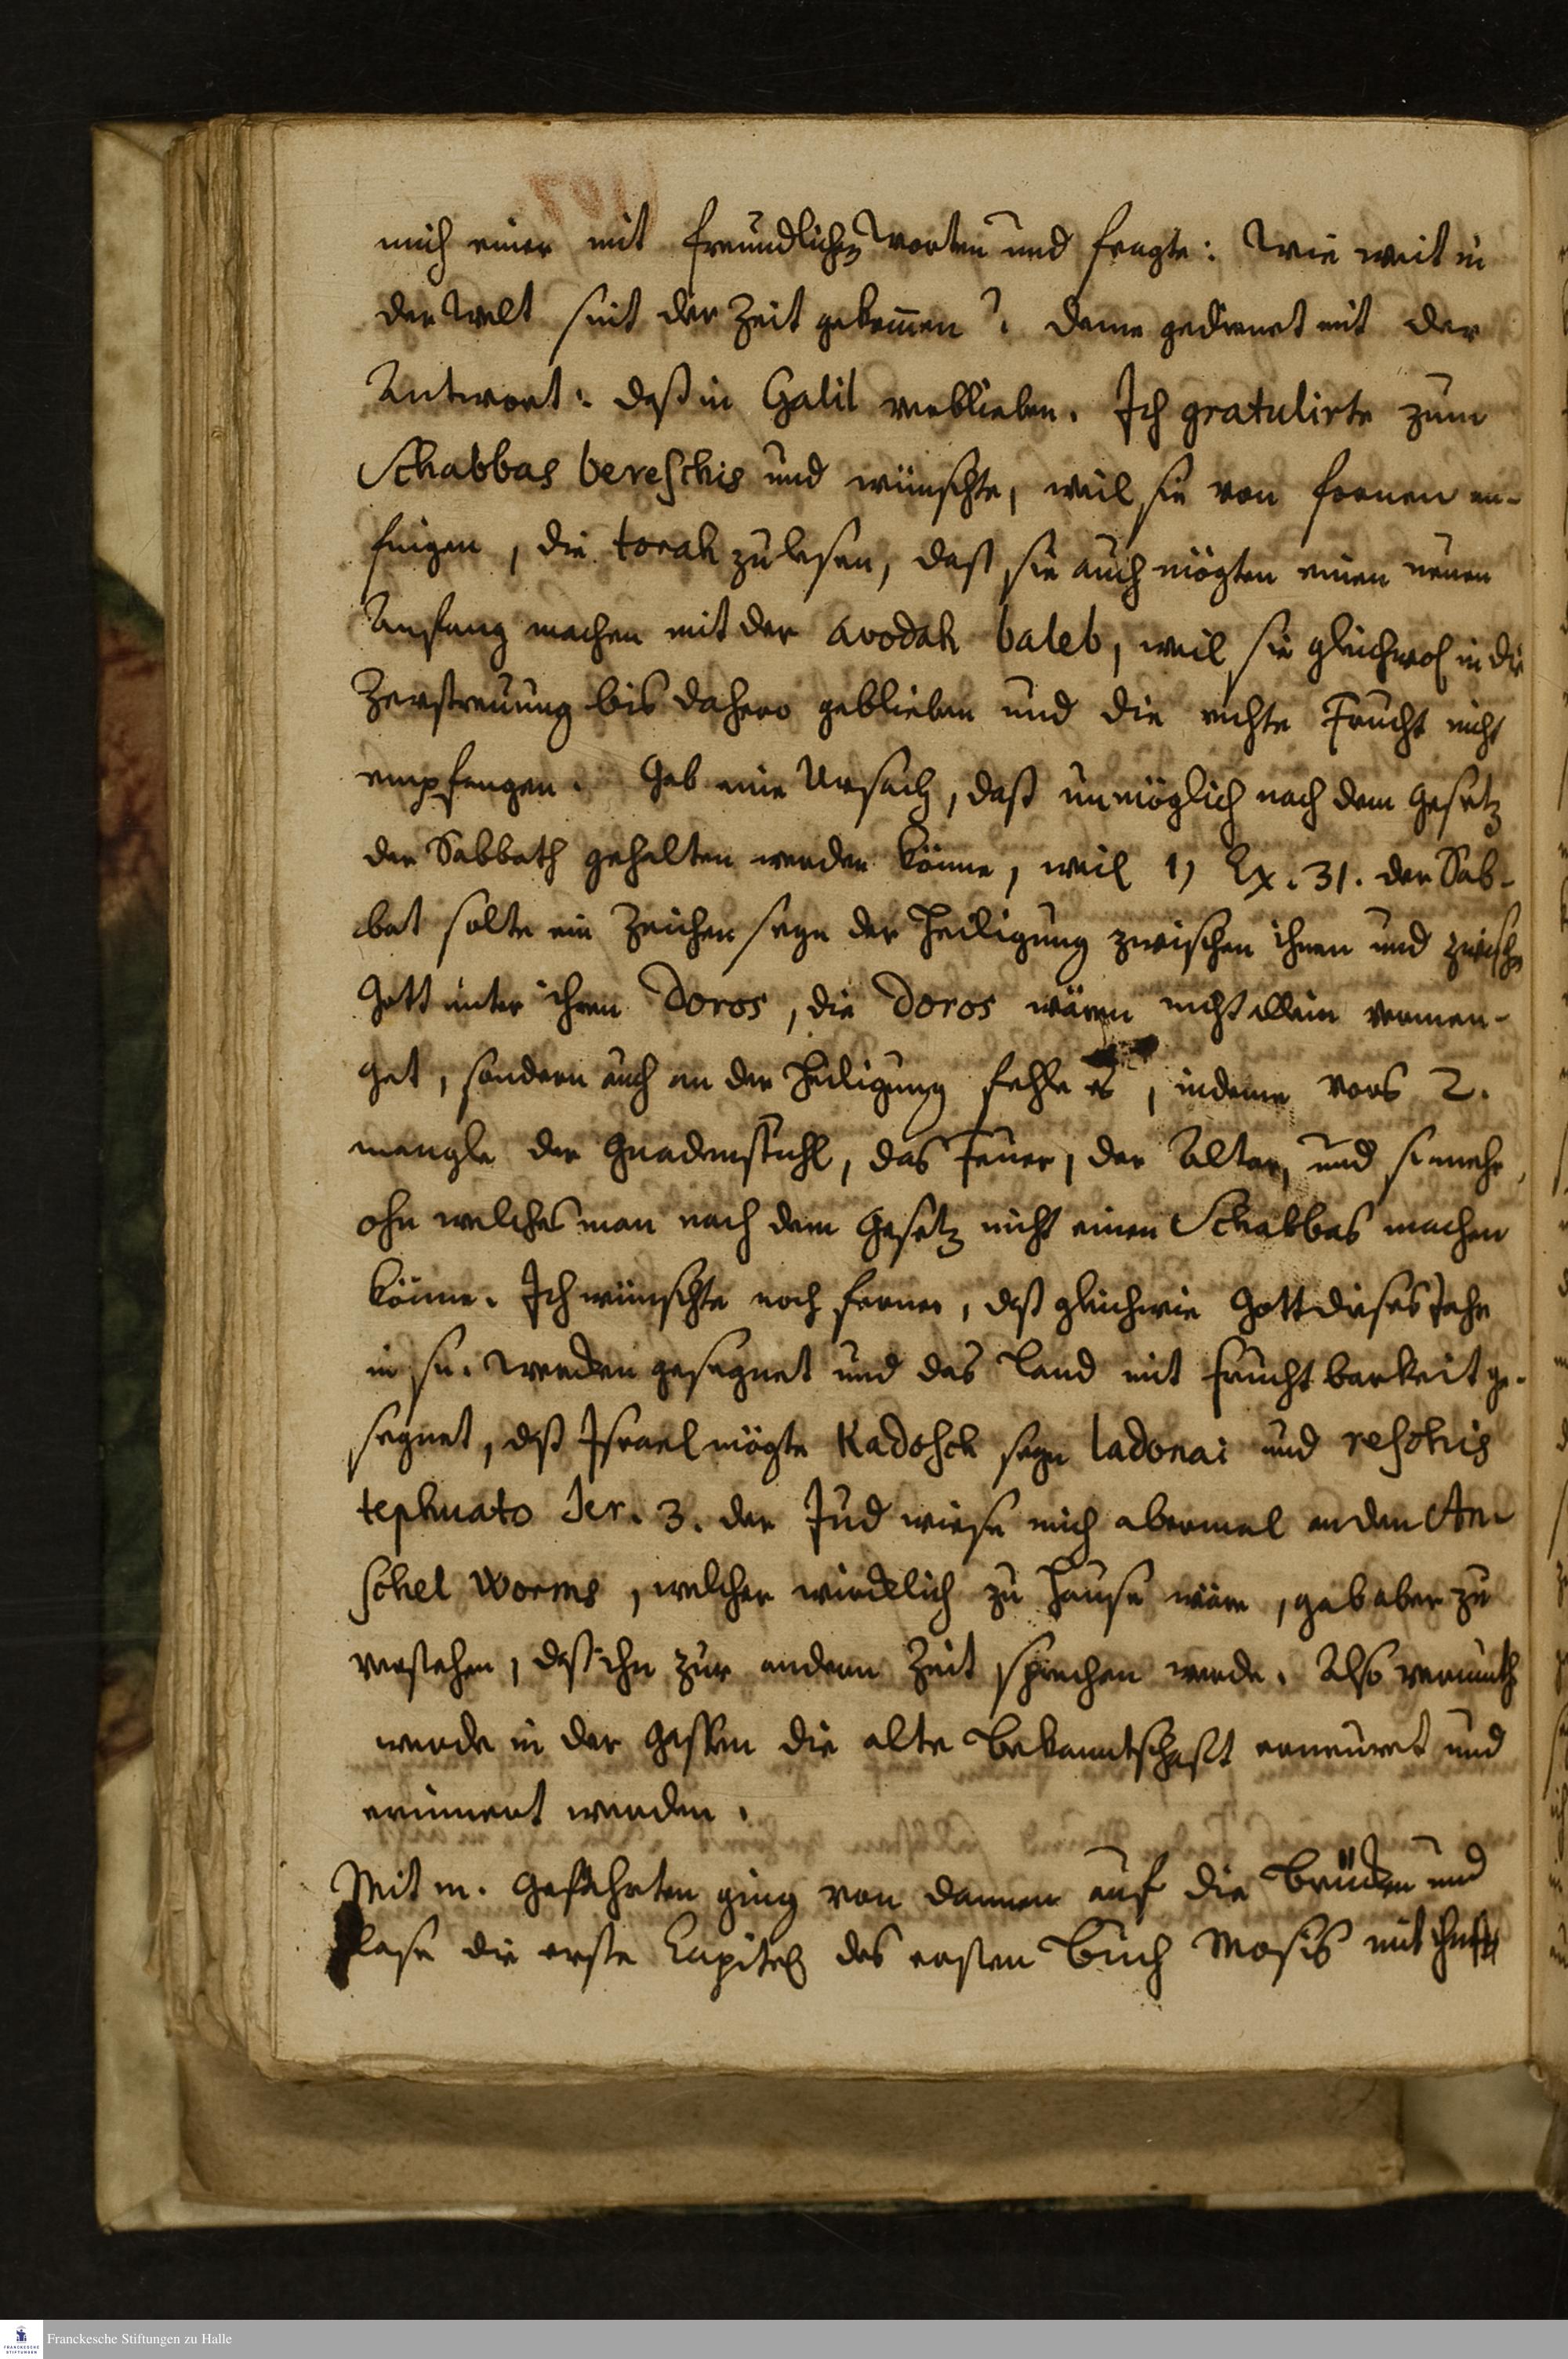 mich einer mit freundlichen Worten und fragte: Wie weit in
der Welt seit der Zeit gekommen? deme gedienet mit der
Antwort: daß in Galil verblieben. Ich gratulirte zum
Schabbas bereschis und wünschte, weil sie von fornen an-
fingen, die torah zu lesen, daß sie auch mögten einen neuen
Anfang machen mit der avodah baleb, weil sie gleichwol in die
Zerstreuung bis dahero geblieben und die rechte Frucht nicht
empfangen. Gab eine Ursach, daß unmöglich nach dem Gesetz
der Sabbath gehalten werden könne, weil 1) Ex. 31. der Sab-
bat solte ein Zeichen seyn der Heiligung zwischen ihnen und zwischen
Gott unter ihren Doros, die Doros wären nicht allein vermen-
get, sondern auch an der Heiligung fehle es, indeme vors 2.
mangle der Gnadenstuhl, das Feuer, der Altar, und s. mehr,
ohn welches man nach dem Gesetz nicht einen Schabbas machen
könne. Ich wünschte noch ferner, daß gleichwie Gott dieses Jahr
in sn. werden gesegnet und das Land mit Fruchtbarkeit ge-
segnet, daß Israel mögte Kadosch seyn ladonai und reschis
tephuato Jer. 3. der Jud wiese mich abermal an den An-
schel Worms, welcher würcklich zu Hause wäre, gab aber zu
verstehen, daß ihn zur andern Zeit sprechen werde. Also vermuth
werde in der Gassen die alte Bekanntschafft erneuret und
erinnert werden.
Mit m. Gefährten ging von dannen auf die Brücken und
lase die erste Capitel des ersten Buch Mosis mit